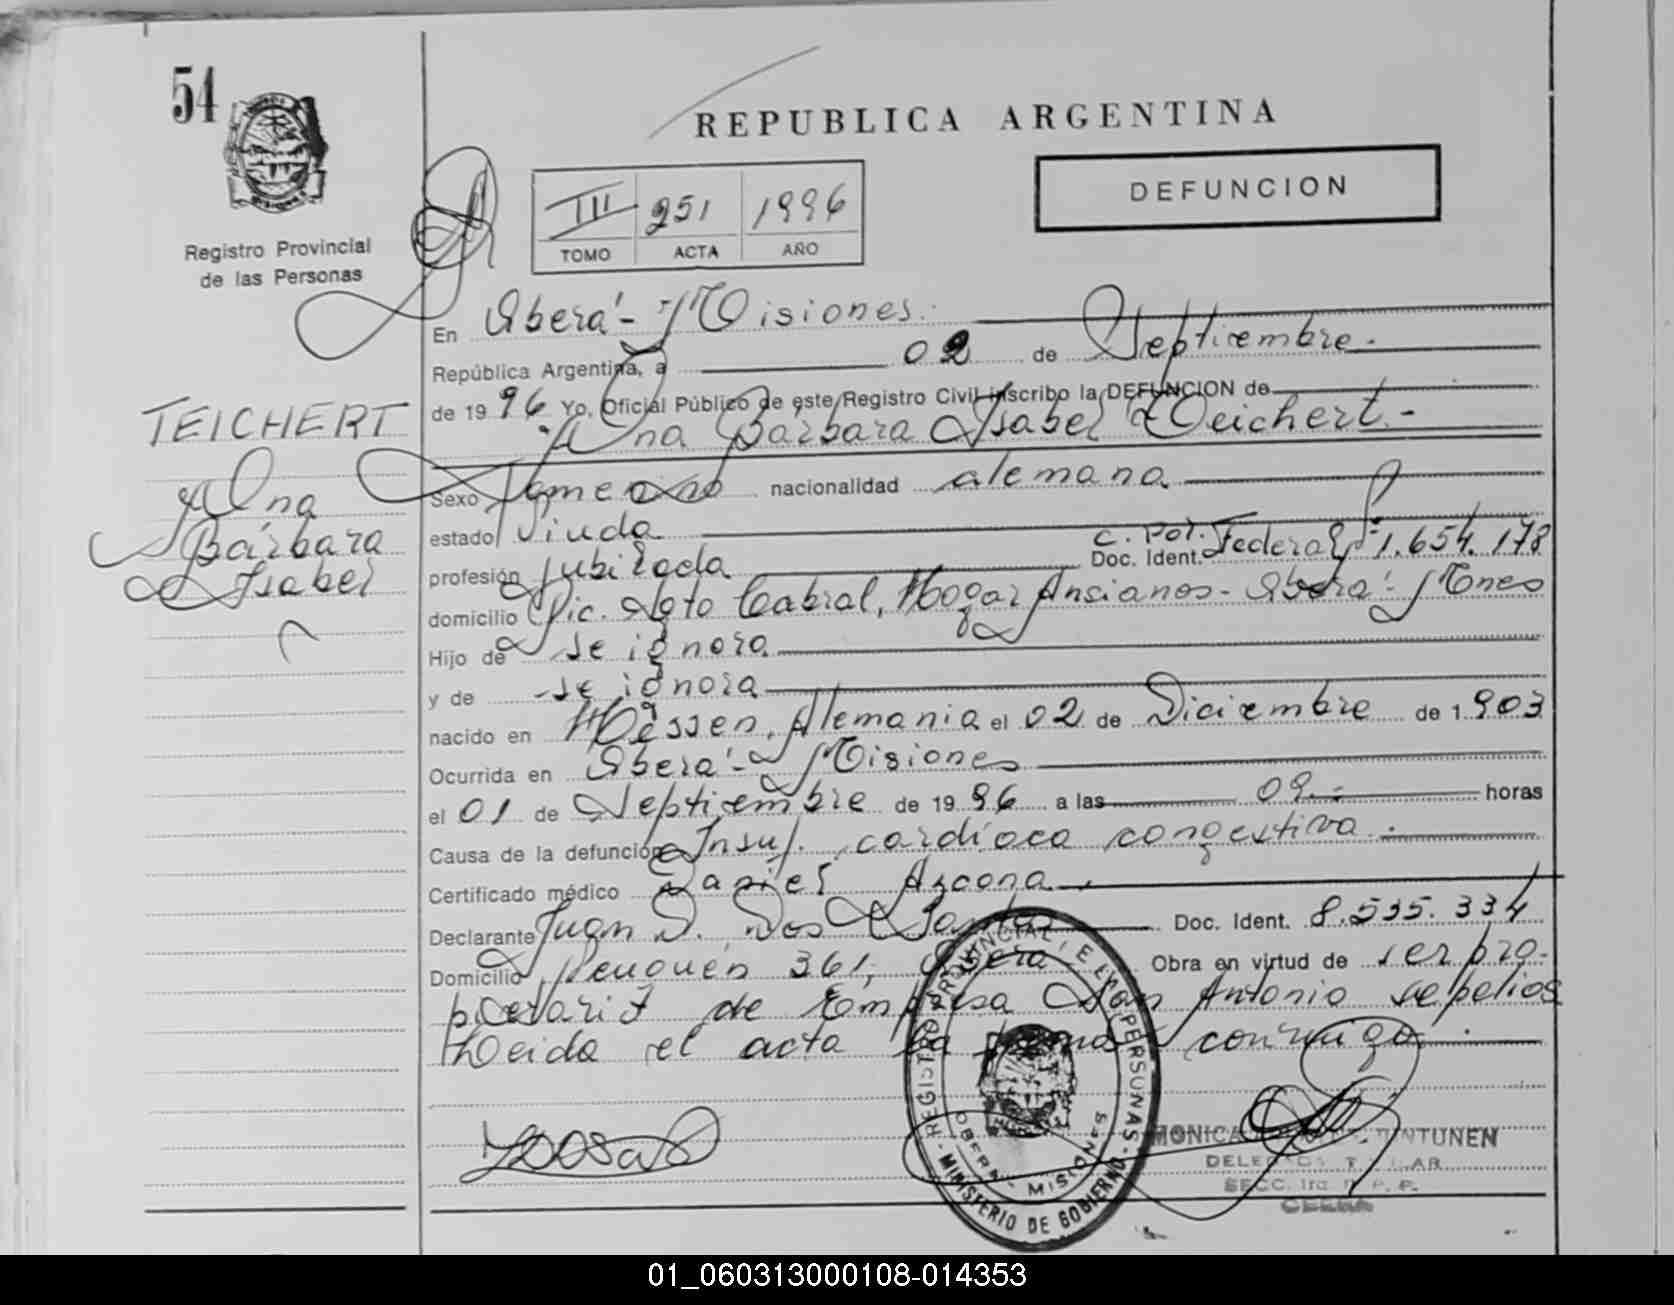 54
REPUBLICA ARGENTINA
DEFUNCION
III 251 1996
TOMO ACTA AÑO
Registro Provincial
de las Personas
En Oberá - Misiones.
República Argentina, a 02 de Septiembre.
de 1996 Yo, Oficial Público de este Registro Civil inscribo la DEFUNCION de
Ana Bárbara Isabel Teichert.-
TEICHERT
Ana
Bárbara
Isabel
Sexo nacionalidad alemana
estado Viuda
profesión Jubilada C. Pol. Doc. Ident. Federal 1.654.178
domicilio Pic. Sgto Cabral, Hogar Ancianos - Oberá - Mnes
Hijo de se ignora
y de se ignora
nacido en Hessen, Alemania el 02 de Diciembre de 1.903
Ocurrida en Oberá - Misiones
el 01 de Septiembre de 1996 a las 09.- horas
Causa de la defunción Insuf. cardíaca congestiva.
Certificado médico Daniel Azcona
Declarante Juan D. Dos Santos Doc. Ident. 8.535.334
Domicilio Neuquén 361, Oberá Obra en virtud de ser pro-
pietario de Empresa San Antonio sepelios
Leida el acta la firma conmigo.
REGISTRO PROVINCIAL DE LAS PERSONAS
OBERA - MISIONES
MINISTERIO DE GOBIERNO
MONICA
SECC. 1ra. R. P. P.
OBERA
01_060313000108-014353